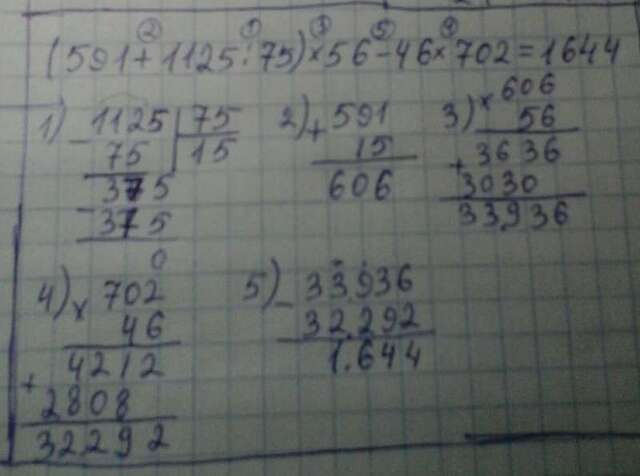 ② ① ③ ⑤ ④
(591+1125:75)×56-46×702=1644
1) 1125 | 75
- 75 | 15
375
- 375
0
2) + 591
15
606
3) × 606
56
+ 3636
3030
33936
4) × 702
46
4212
+ 2808
32292
5) - 33936
32.292
1.644